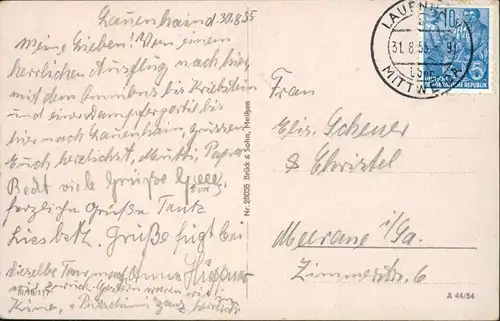 Lauenhain d. 30.8.55
Meine Lieben! Von einem
herrlichen Ausflug nach hier,
mit dem Omnibus bis Kriebstein
und einer Dampferpartie bis
hier nach Lauenhain, grüssen
Euch herzlichst, Mutti, Papa
Recht viele Grüße
herzliche Grüße Tante
Liesbeth. Grüße fügt bei
Dieselbe Tour Anna
zurück. Gestern waren wir
Kino, ganz
III/18/117
Nr. 28035 Brück & Sohn, Meißen
LAUENHAIN
31.8.55
MITTWEIDA
10
DEUTSCHE DEMOKRATISCHE REPUBLIK
Frau
Elis. Scheuer
& Christel
Meerane i/Sa.
Zimmerstr. 6
A 44/54